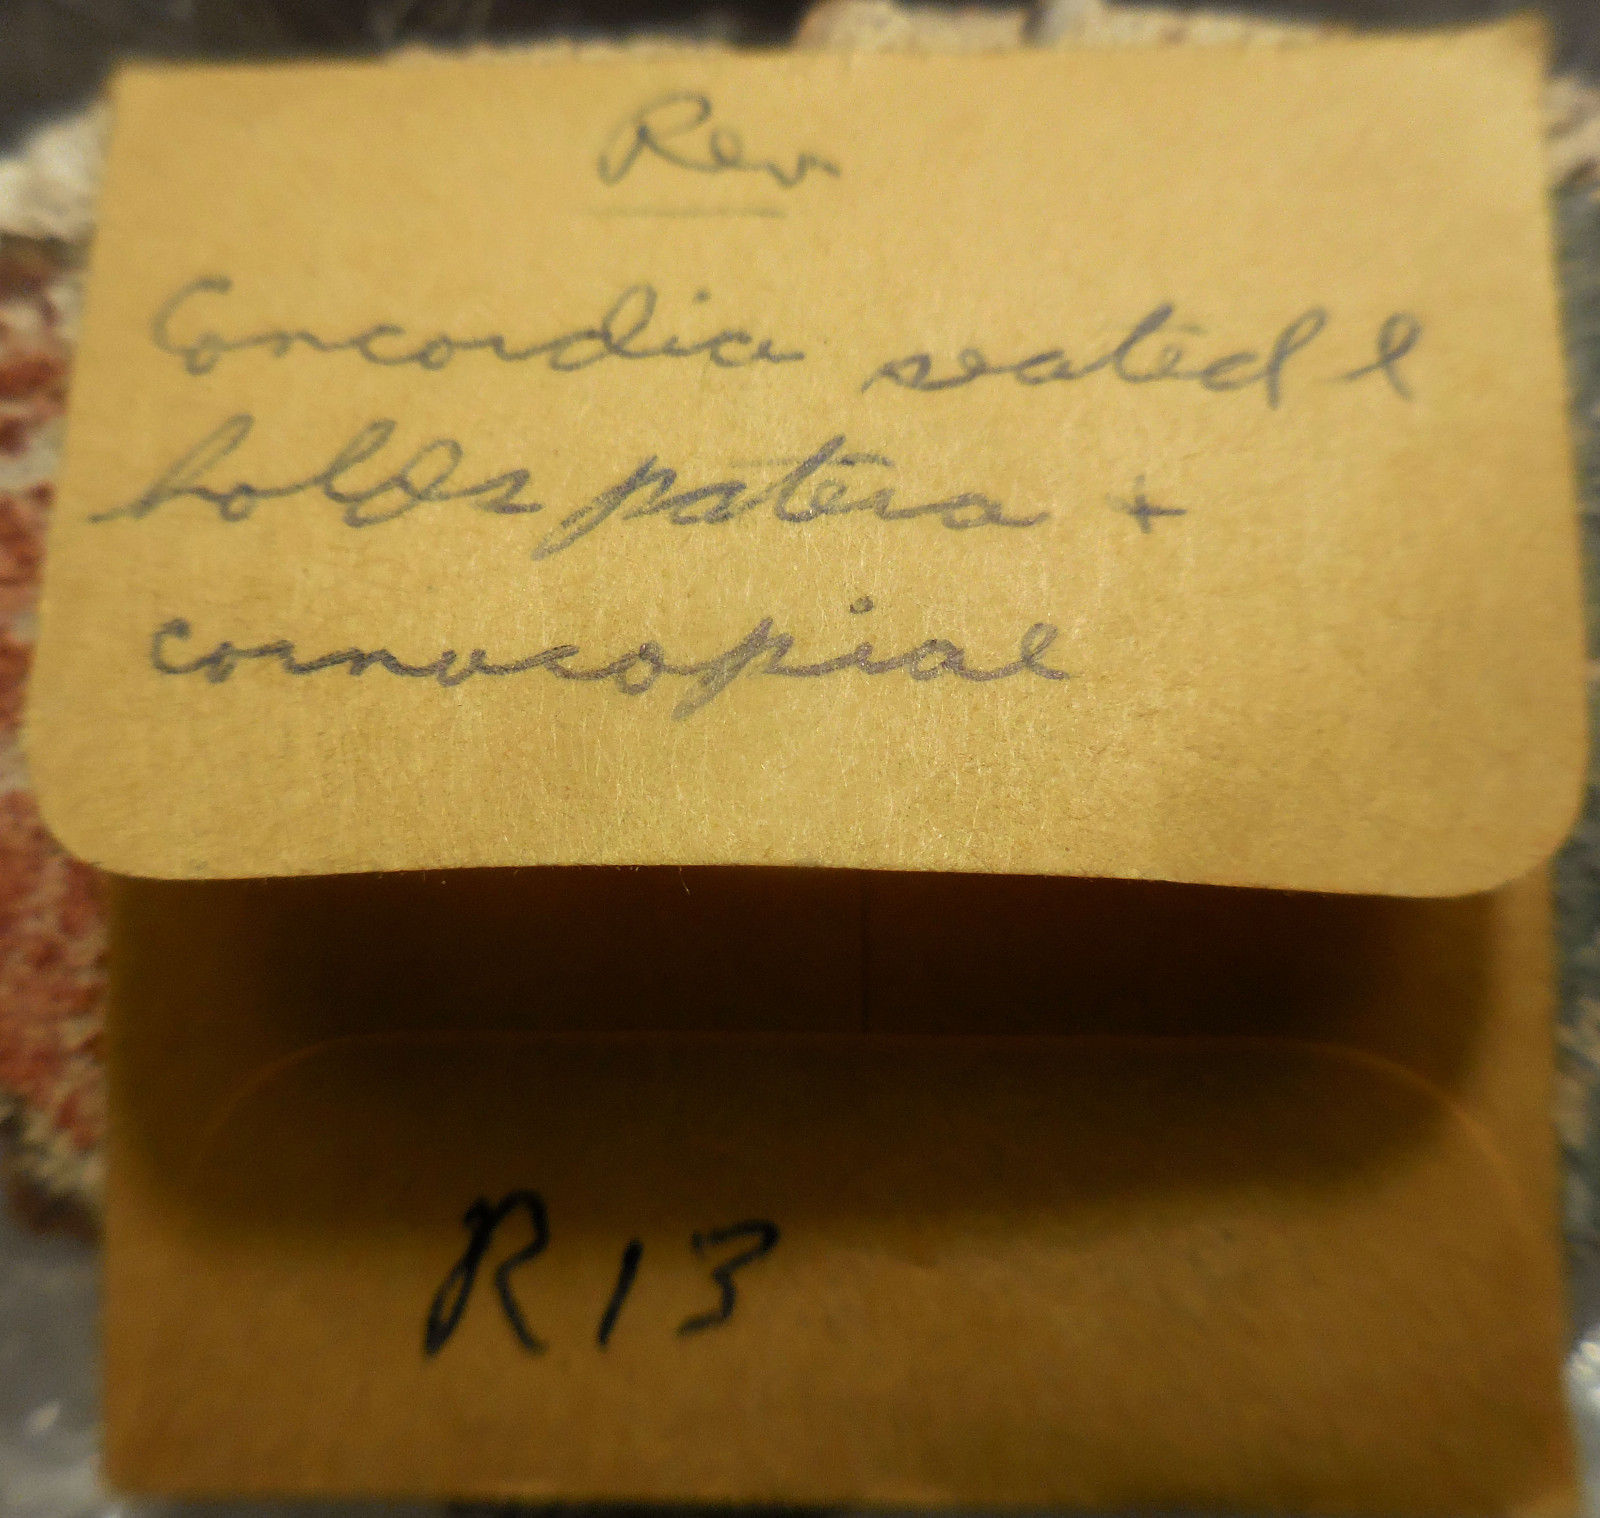 Rev
Concordia seated l
holds patera +
cornucopiae
R13